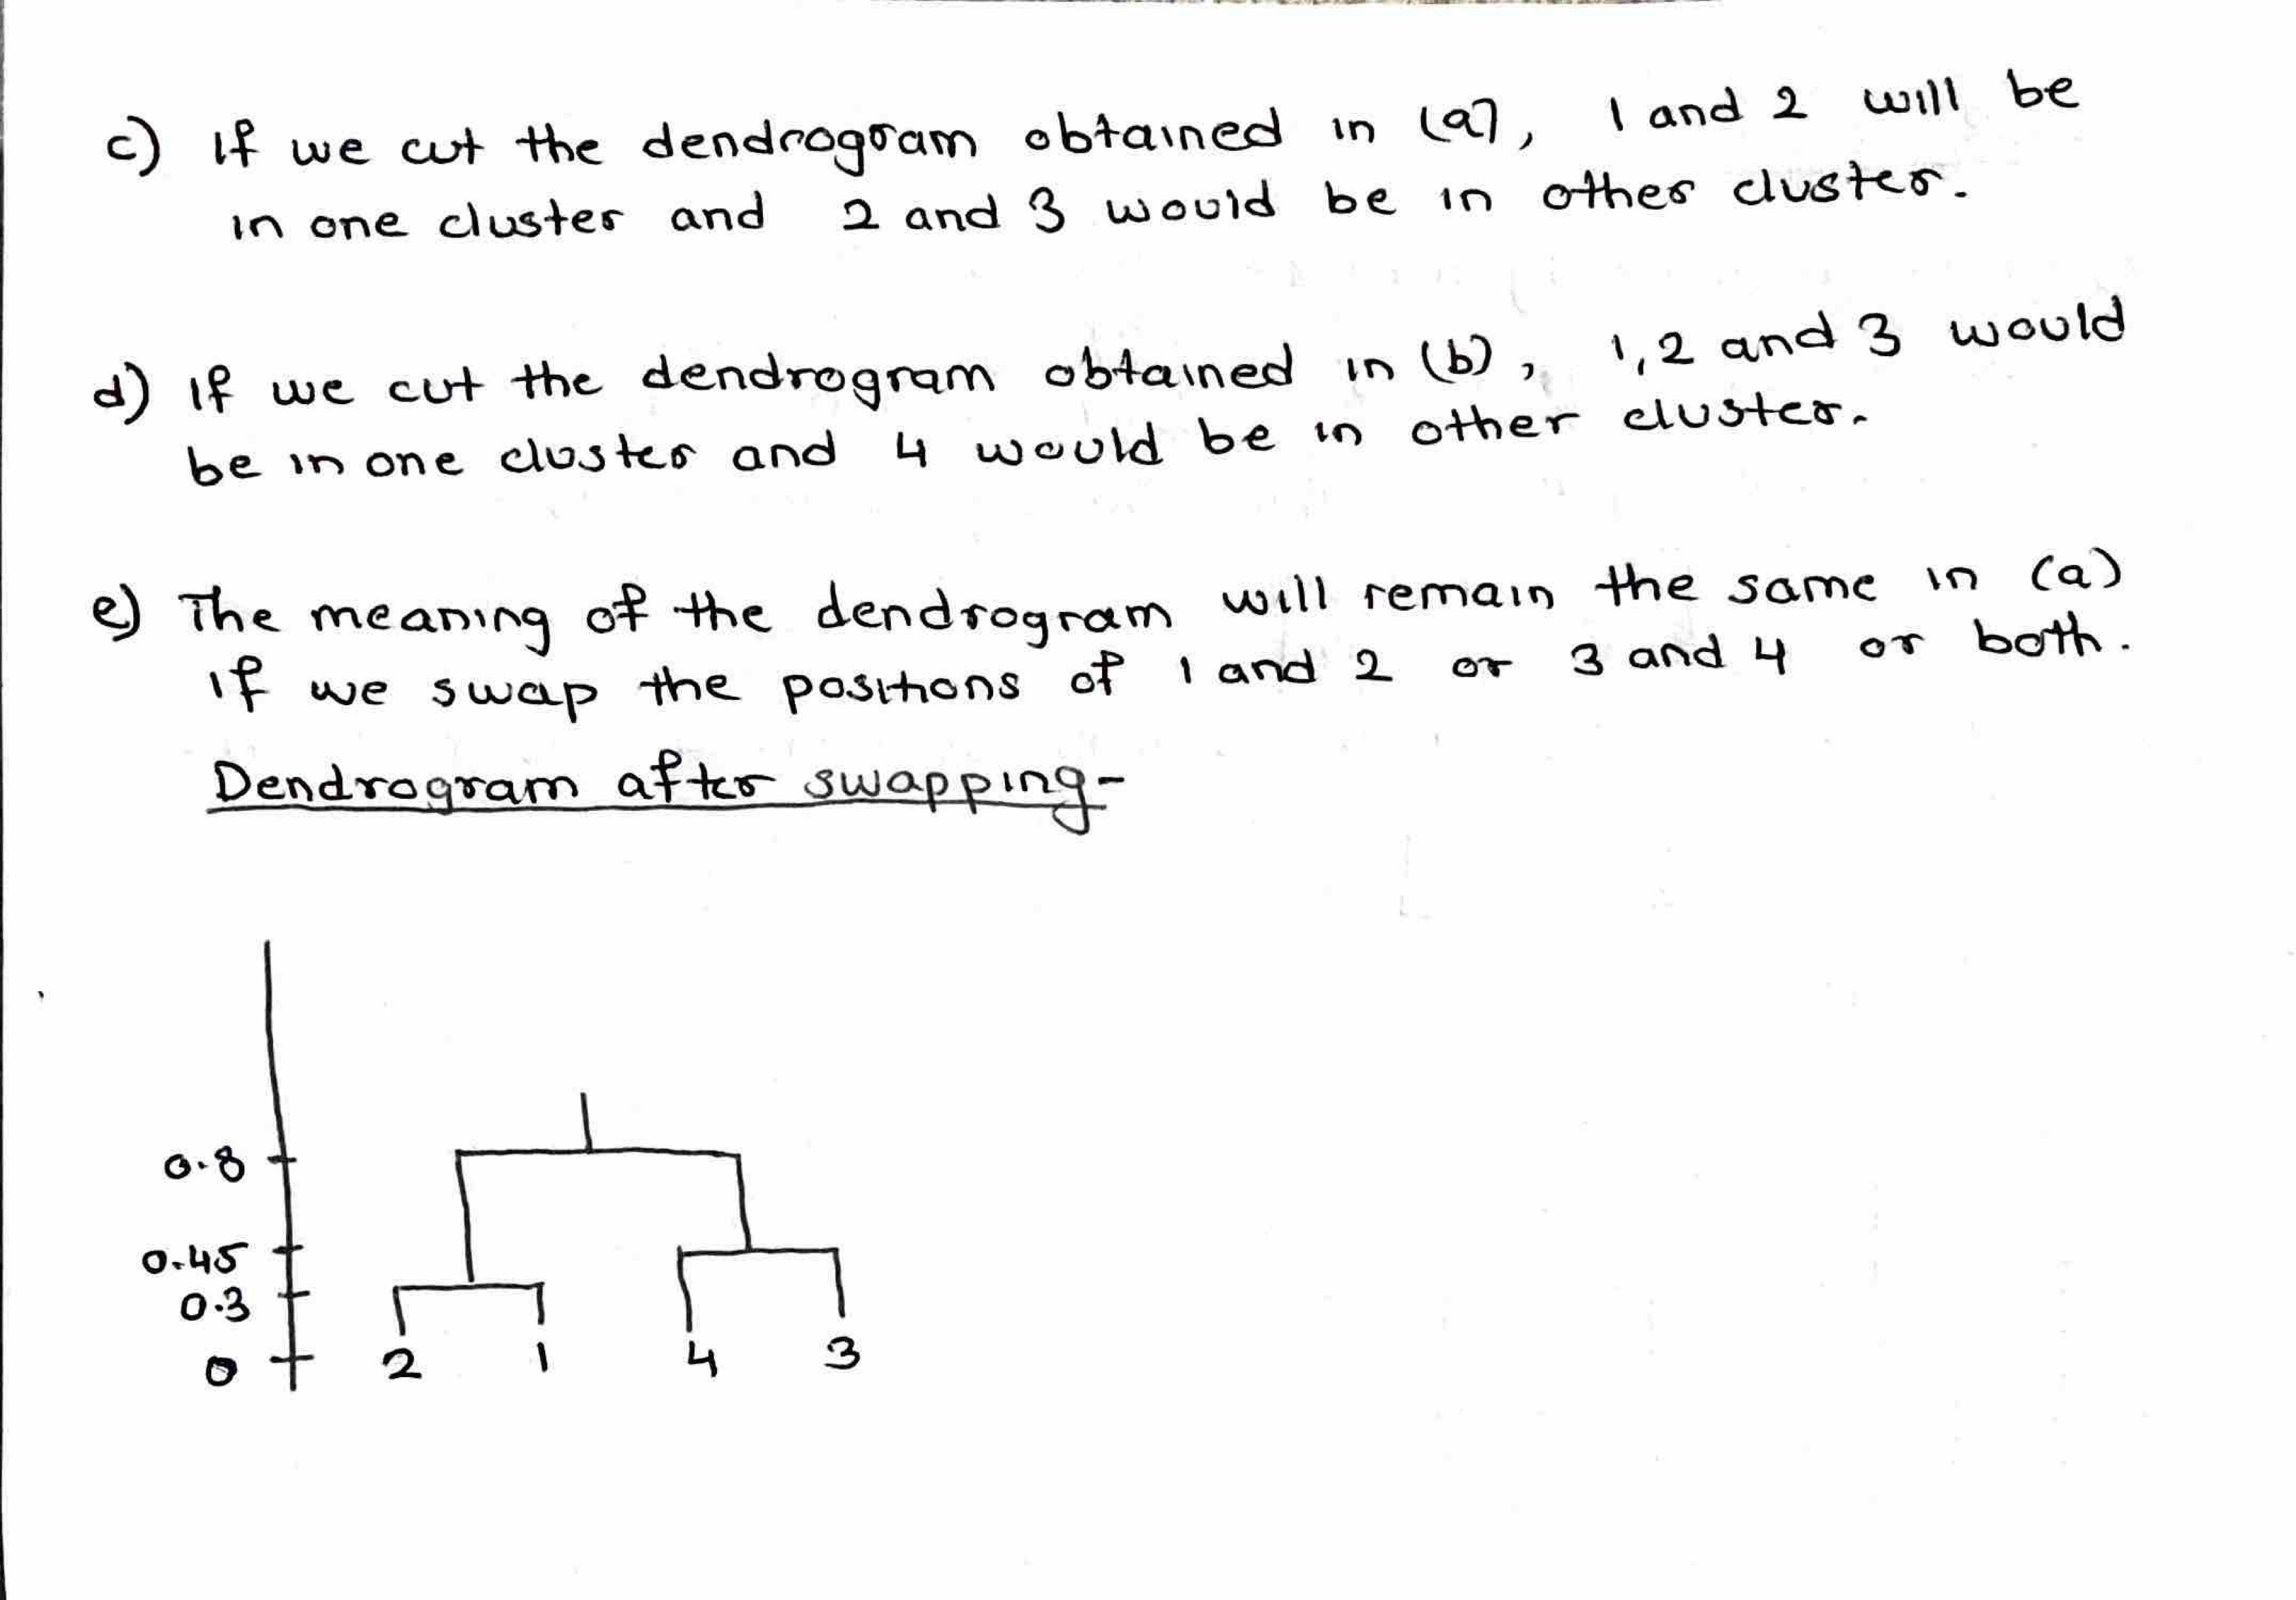 c) If we cut the dendrogram obtained in (a), 1 and 2 will be
in one cluster and 2 and 3 would be in other cluster.
d) If we cut the dendrogram obtained in (b), 1,2 and 3 would
be in one cluster and 4 would be in other cluster.
e) The meaning of the dendrogram will remain the same in (a)
if we swap the positions of 1 and 2 or 3 and 4 or both.
Dendrogram after swapping-
0.8
0.45
0.3
0 2 1 4 3